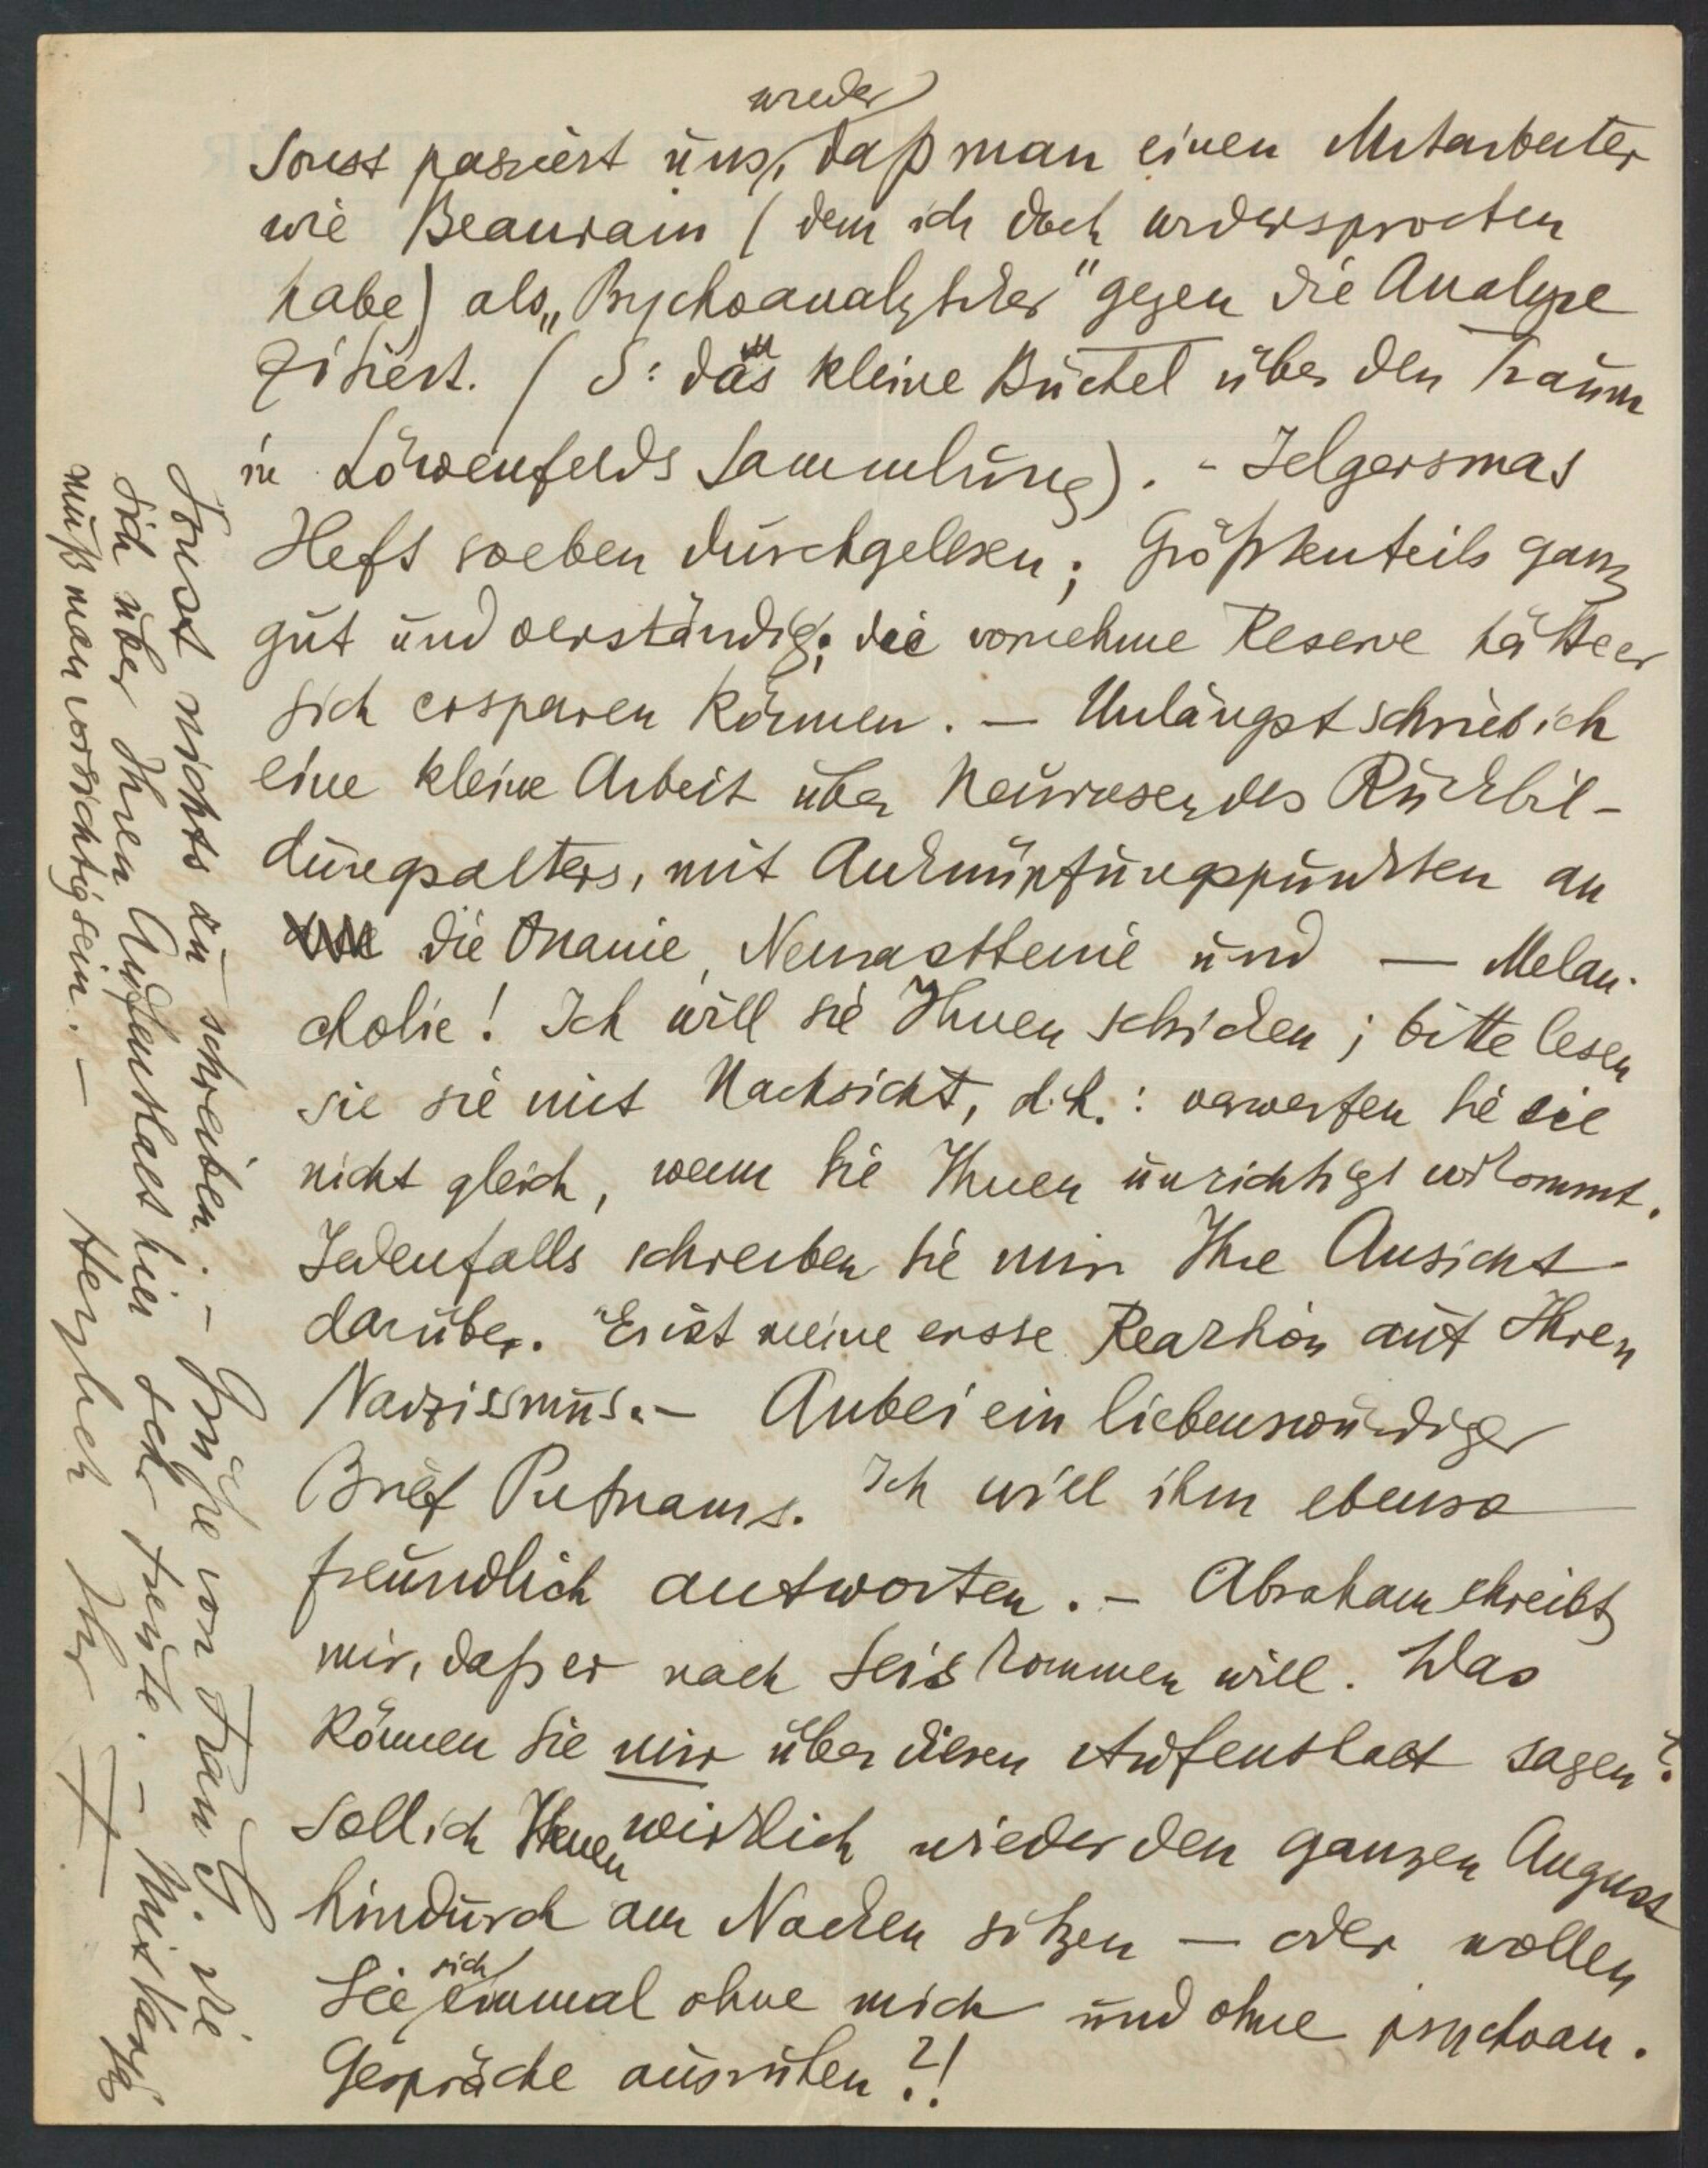 wieder
Sonst passiert uns, daß man einen Mitarbeiter
wie Beaurain (dem ich doch widersprochen
habe) als „Psychoanalytiker" gegen die Analyse
zitiert. (S: das kleine Büchel über den Traum
in Löwenfelds Sammlung). - Jelgersmas
Heft soeben durchgelesen; Größtenteils ganz
gut und verständig; die vornehme Reserve hätte er
sich ersparen können. — Unlängst schrieb ich
eine kleine Arbeit über Neurosen des Rückbil-
dungsalters, mit Anknüpfungspunkten an
die Onanie, Neurasthenie und — Melan-
cholie! Ich will sie Ihnen schicken; bitte lesen
sie sie mit Nachsicht, d.h.: verwerfen Sie sie
nicht gleich, wenn sie Ihnen unrichtig vorkommt.
Jedenfalls schreiben Sie mir Ihre Ansicht
darüber. Es ist meine erste Reaktion auf Ihren
Narzissmus. - Anbei ein liebenswürdiger
Brief Putnams. Ich will ihm ebenso
freundlich antworten. - Abraham schreibt
mir, daß er nach Seis kommen will. Was
können Sie mir über diesen Aufenthalt sagen?
Soll ich Ihnen wirklich wieder den ganzen August
hindurch am Nacken sitzen — oder wollen
sich
Sie einmal ohne mich und ohne psychoan.
Gespräche ausruhen?!
Sonst nichts zu schreiben. - Grüße von Frau G. die
sich über Ihren Aufenthalt hier sehr freute. - Mit
muß man vorsichtig sein. — Herzlich Ihr F